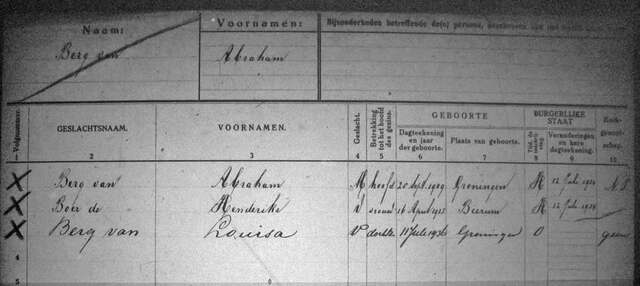 Naam:
Voornamen:
Bijzonderheden betreffende de(n) persoon,
Berg van
Abraham
Volgnummer.
GESLACHTSNAAM.
VOORNAMEN.
Geslacht.
Betrekking tot het hoofd des gezins.
GEBOORTE
Dagteekening en jaar der geboorte.
Plaats van geboorte.
BURGERLIJKE STAAT
Veranderingen en hare dagteekening.
Kerk-
1 2 3 4 5 6 7 8 9 10
Berg van Abraham M hoofd 20 Sept. 1909 Groningen H 12 Juli 1934
2 Boer de Henderika V vrouw 16 April Bierum H 12 Juli 1934
3 Berg van Louisa V dochter 11 Juli 1936 Groningen O geen
4
5